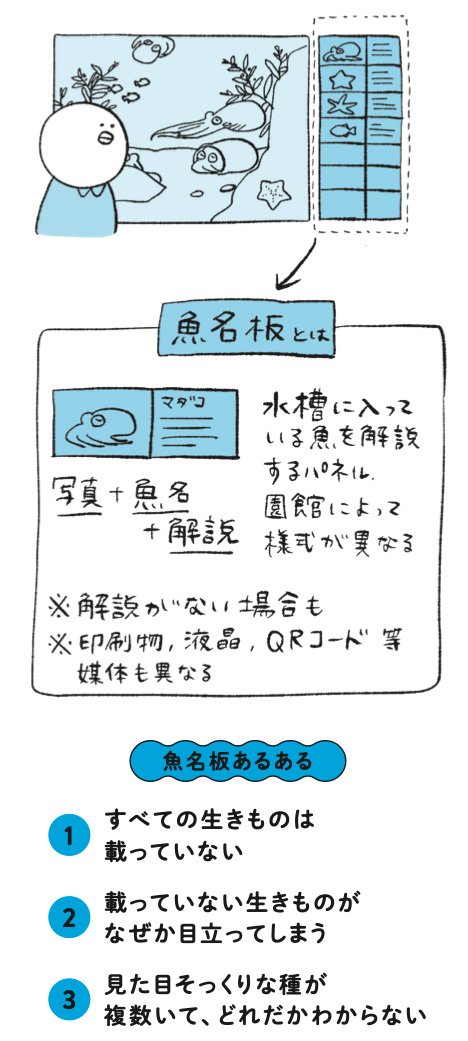 魚名板とは
マダコ
写真+魚名
+解説
水槽に入って
いる魚を解説
するパネル.
園館によって
様式が異なる
※解説がない場合も
※印刷物,液晶,QRコード等
媒体も異なる
魚名板あるある
1
すべての生きものは
載っていない
2
載っていない生きものが
なぜか目立ってしまう
3
見た目そっくりな種が
複数いて、どれだかわからない